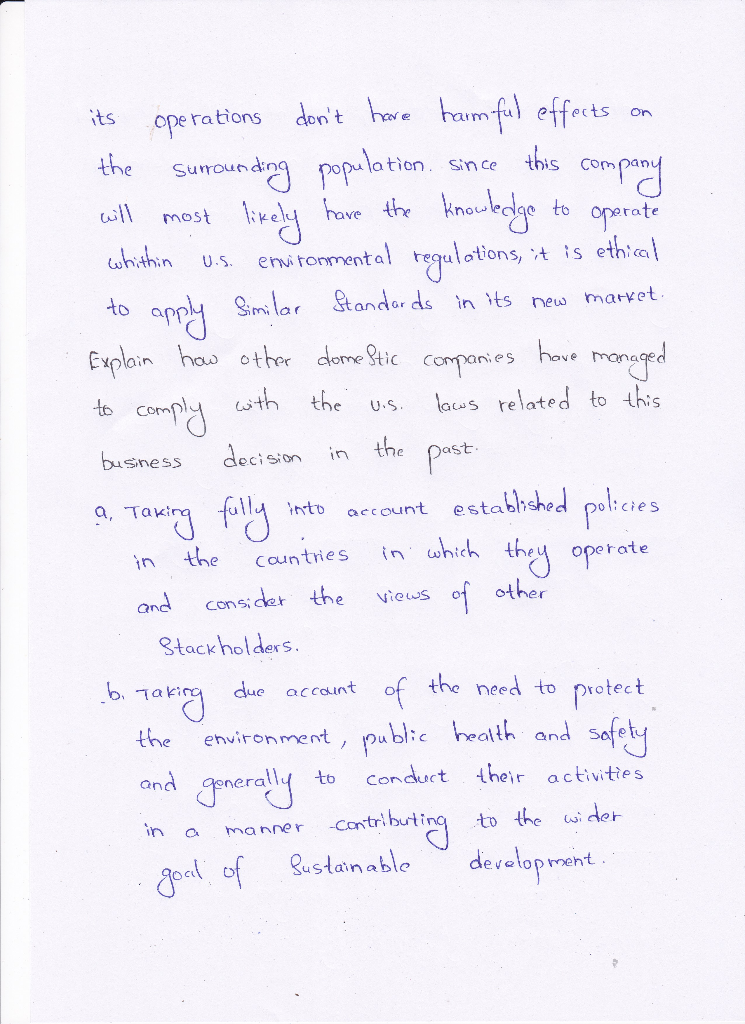 its operations don't have harmful effects on
the surrounding population. since this company
will most likely have the knowledge to operate
whithin U.S. environmental regulations, it is ethical
to apply Similar Standards in its new market.
Explain how other domestic companies have managed
to comply with the U.S. laws related to this
business decision in the past.
a, Taking fully into account established policies
in the countries in which they operate
and consider the views of other
Stackholders.
b, Taking due account of the need to protect
the environment, public health and safety
and generally to conduct their activities
in a manner contributing to the wider
goal of Sustainable development.